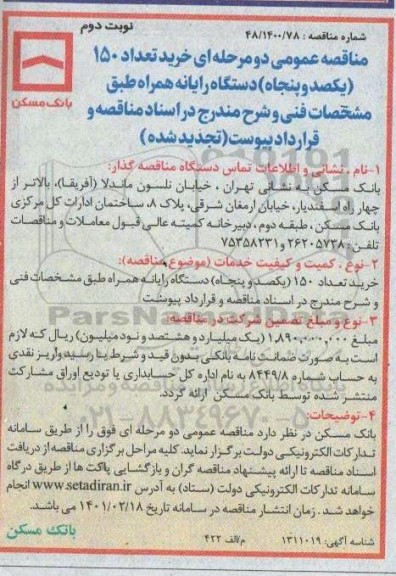 نوبت دوم
شماره مناقصه : ۴۸/۱۴۰۰/۷۸
مناقصه عمومی دو مرحله ای خرید تعداد ۱۵۰
(یکصد و پنجاه) دستگاه رایانه همراه طبق
مشخصات فنی و شرح مندرج در اسناد مناقصه و
قرارداد پیوست (تجدید شده)
بانک مسکن
۱-نام ، نشانی و اطلاعات تماس دستگاه مناقصه گذار:
بانک مسکن به نشانی تهران ، خیابان نلسون ماندلا (آفریقا)، بالاتر از
چهار راه اسفندیار، خیابان ارمغان شرقی، پلاک ۸، ساختمان ادارات کل مرکزی
بانک مسکن ، طبقه دوم، دبیرخانه کمیته عالی قبول معاملات و مناقصات
تلفن : ۲۶۲۰۵۷۳۸ و ۷۵۳۵۸۲۳۱
۲- نوع ، کمیت و کیفیت خدمات (موضوع مناقصه):
خرید تعداد ۱۵۰ (یکصد و پنجاه) دستگاه رایانه همراه طبق مشخصات فنی
و شرح مندرج در اسناد مناقصه و قرارداد پیوست
۳- نوع و مبلغ تضمین شرکت در مناقصه:
مبلغ ۱،۸۹۰،۰۰۰،۰۰۰ (یک میلیارد و هشتصد و نود میلیون) ریال که لازم
است به صورت ضمانت نامه بانکی بدون قید و شرط یا رسید واریز نقدی
به حساب شماره ۸۴۴۹/۸ به نام اداره کل حسابداری یا تودیع اوراق مشارکت
منتشر شده توسط بانک مسکن ارائه گردد.
۴-توضیحات:
بانک مسکن در نظر دارد مناقصه عمومی دو مرحله ای فوق را از طریق سامانه
تدارکات الکترونیکی دولت برگزار نماید. کلیه مراحل برگزاری مناقصه از دریافت
اسناد مناقصه تا ارائه پیشنهاد مناقصه گران و بازگشایی پاکت ها از طریق درگاه
سامانه تدارکات الکترونیکی دولت (ستاد) به آدرس www.setadiran.ir انجام
خواهد شد . زمان انتشار مناقصه در سامانه تاریخ ۱۴۰۱/۰۲/۱۸ می باشد.
شناسه آگهی: ۱۳۱۱۰۱۹
م/الف ۴۲۲
بانک مسکن
ParsNamadData
۰۲۱-۸۸۳۴۹۶۷۰-۵